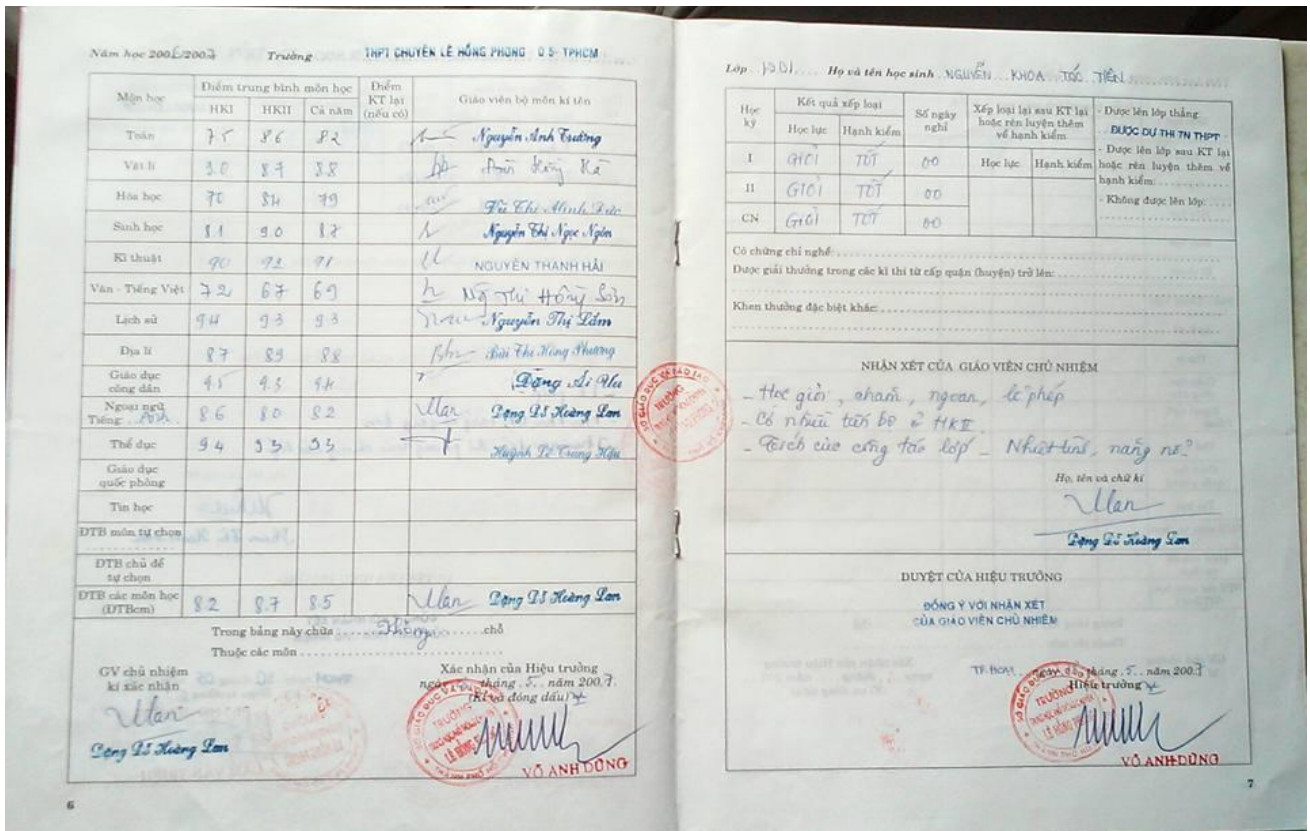 Năm học 2006/2007 Trường THPT CHUYÊN LÊ HỒNG PHONG Q 5- TPHCM
Môn học Điểm trung bình môn học Điểm KT lại (nếu có) Giáo viên bộ môn kí tên
HKI HKII Cả năm
Toán 7.5 8.6 8.2 Nguyễn Anh Trường
Vật lí 9.0 8.7 8.8
Hóa học 79 Vũ Thị Minh Đức
Sinh học 8.1 9.0 8.7 Nguyễn Thị Ngọc Ngôn
Kĩ thuật 90 92 91 NGUYỄN THANH HẢI
Văn - Tiếng Việt 7.2 6.7 6.9 Ng Thị Hồng Sơn
Lịch sử 9.4 9.3 9.3 Nguyễn Thị Lắm
Địa lí 8.7 8.9 8.8 Bùi Thị Hồng Phương
Giáo dục công dân 9.5 9.3 9.4 Đặng Ái Vu
Ngoại ngữ Tiếng: 8.6 8.0 8.2 Đặng Dỗ Hoàng Lan
Thể dục 9.4 9.3 9.3 Huỳnh Lê Trung Hậu
Giáo dục quốc phòng
Tin học
ĐTB môn tự chọn
ĐTB chủ đề tự chọn
ĐTB các môn học (ĐTBcm) 8.2 8.7 8.5 Đặng Dỗ Hoàng Lan
Trong bảng này chữa Không chỗ
Thuộc các môn
GV chủ nhiệm
kí xác nhận
Đặng Dỗ Hoàng Lan
Xác nhận của Hiệu trưởng
ngày tháng 5 năm 2007
(Kí và đóng dấu)
VÕ ANH DŨNG
6
Lớp Họ và tên học sinh NGUYỄN KHOA TÓC TIÊN
Học kỳ Kết quả xếp loại Số ngày nghỉ Xếp loại lại sau KT lại hoặc rèn luyện thêm về hạnh kiểm - Được lên lớp thẳng
Học lực Hạnh kiểm ĐƯỢC DỰ THI TN THPT
I GIỎI TỐT 00 Học lực Hạnh kiểm - Được lên lớp sau KT lại hoặc rèn luyện thêm về hạnh kiểm:
II GIỎI TỐT 00 - Không được lên lớp:
CN GIỎI TỐT 00
Có chứng chỉ nghề:
Được giải thưởng trong các kì thi từ cấp quận (huyện) trở lên:
Khen thưởng đặc biệt khác:
NHẬN XÉT CỦA GIÁO VIÊN CHỦ NHIỆM
- Học giỏi, chăm, ngoan, lễ phép
- Có nhiều tiến bộ ở HKII
- Tích cực công tác lớp - Nhiệt tình, năng nổ
Họ, tên và chữ kí
Đặng Dỗ Hoàng Lan
DUYỆT CỦA HIỆU TRƯỞNG
ĐỒNG Ý VỚI NHẬN XÉT
CỦA GIÁO VIÊN CHỦ NHIỆM
TP.HCM, ngày tháng 5 năm 2007
Hiệu trưởng
VÕ ANH DŨNG
7